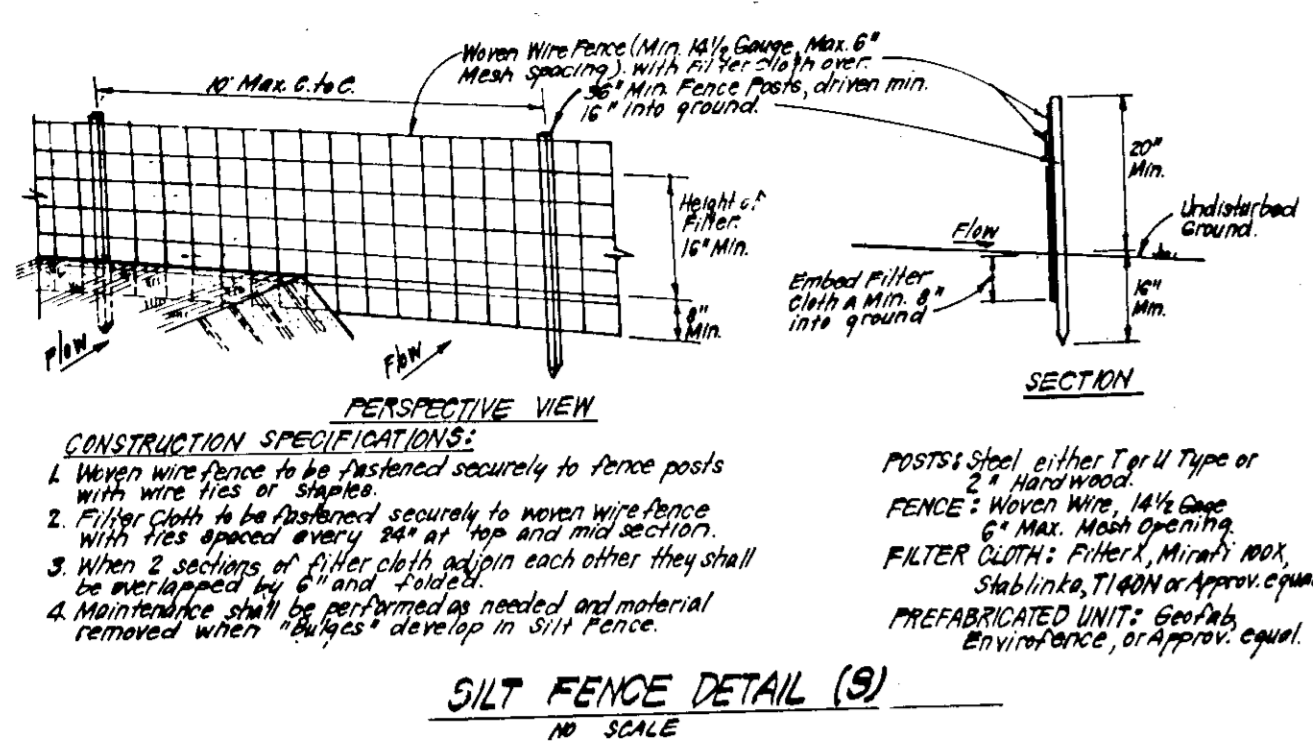 Woven Wire Fence (Min. 14½ Gauge, Max. 6"
Mesh Spacing) with Filter Cloth over.
36" Min. Fence Posts, driven min.
16" into ground.
10' Max. C. to C.
Height of
Filter.
16" Min.
8"
Min.
Flow
Flow
PERSPECTIVE VIEW
20"
Min.
Undisturbed
Ground.
Flow
Embed Filter
Cloth A Min. 8"
into ground
16"
Min.
SECTION
CONSTRUCTION SPECIFICATIONS:
1. Woven wire fence to be fastened securely to fence posts
with wire ties or staples.
2. Filter Cloth to be fastened securely to woven wire fence
with ties spaced every 24" at top and mid section.
3. When 2 sections of filter cloth adjoin each other they shall
be overlapped by 6" and folded.
4. Maintenance shall be performed as needed and material
removed when "Bulges" develop in Silt Fence.
POSTS: Steel either T or U Type or
2" Hardwood.
FENCE: Woven Wire, 14½ Gage
6" Max. Mesh Opening.
FILTER CLOTH: Filter X, Mirafi 100X,
Stablinka, T140N or Approv. equal
PREFABRICATED UNIT: Geofab,
Envirofence, or Approv. equal.
SILT FENCE DETAIL (S)
NO SCALE